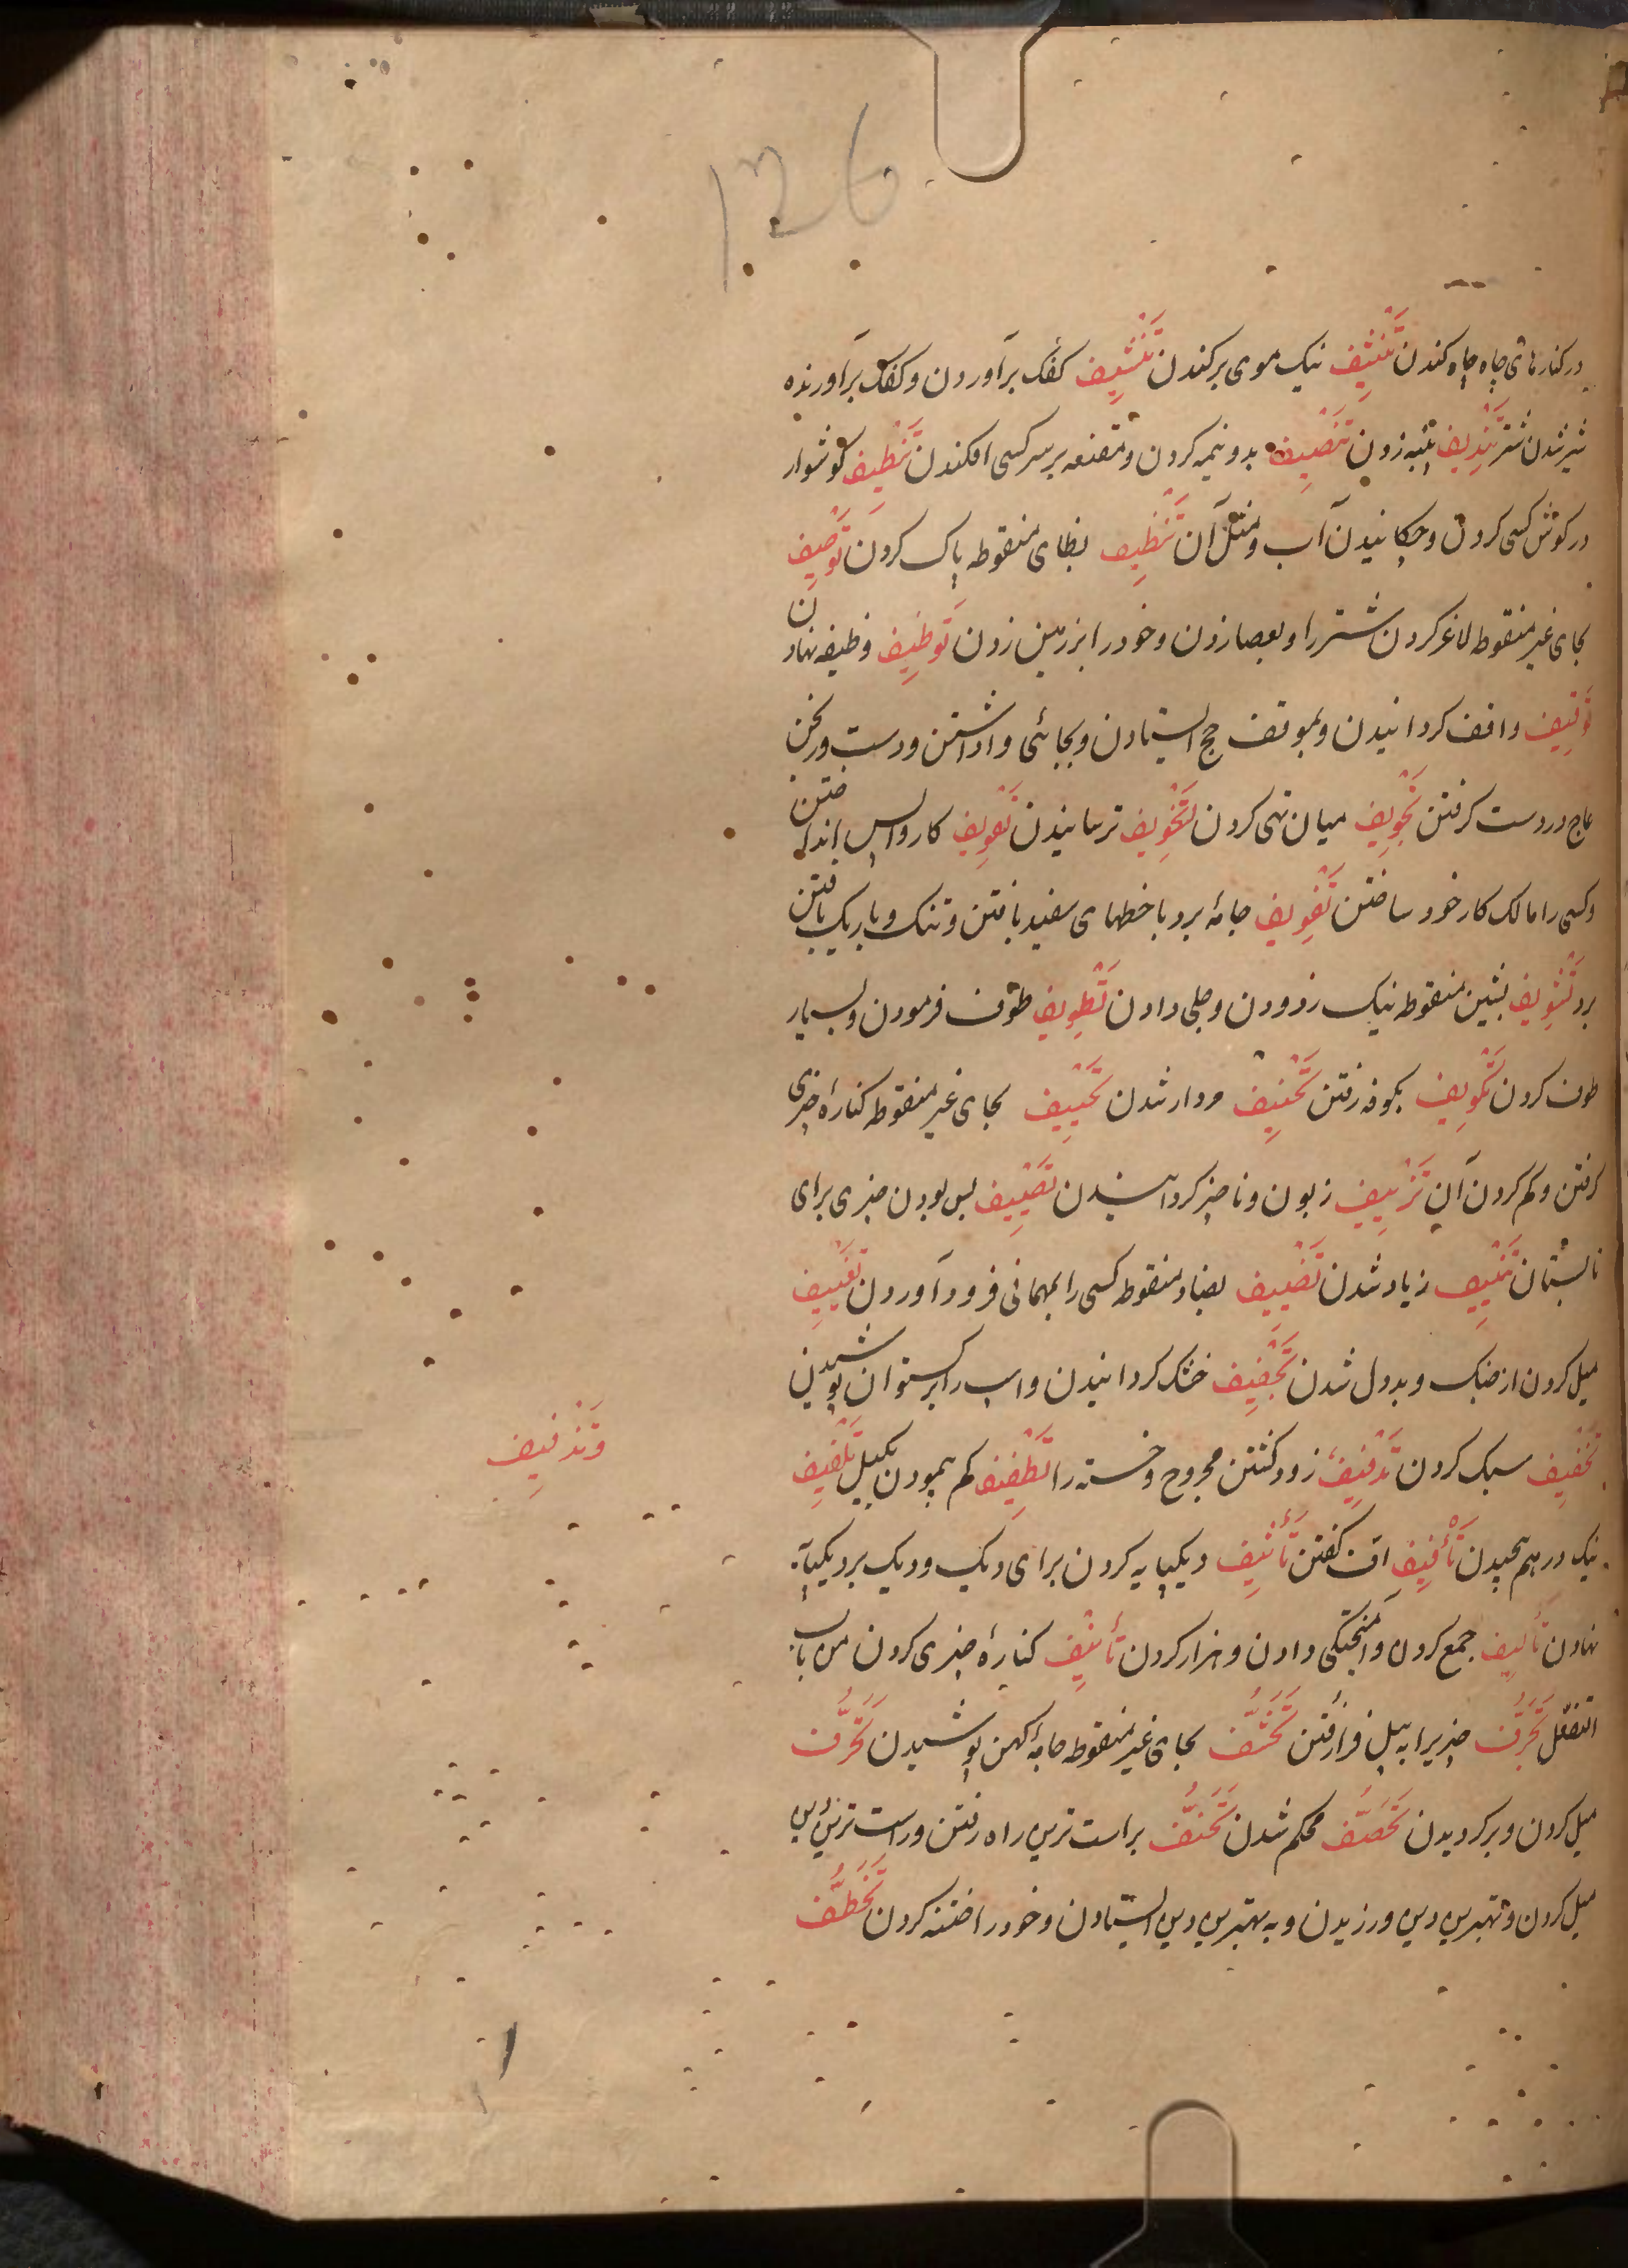 126
در کنارهای چاه چاه کندن تَنْتِیف نیک موی برکندن تَنْشِیف کفک برآوردن و کفک برآورنده
شیر شدن شتر تَنْدِیف پنبه زدن تَنْصِیف بدو نیمه کردن و مقنعه بر سر کسی افکندن تَنْطِیف کوشوار
در کوش کسی کردن و چکانیدن آب و مثل آن تَنْظِیف بظای منقوطه پاک کردن تَوْحِیف
بحای غیر منقوطه لاغر کردن شتر را و بعصا زدن و خود را بر زمین زدن تَوْظِیف وظیفه نهادن
تَوْقِیف واقف کردانیدن و بموقف حج ایستادن و بجائی واداشتن و دست ورنجن
عاج در دست کرفتن تَجْوِیف میان تهی کردن تَخْوِیف ترسانیدن تَسْوِیف کار واپس انداختن
و کسی را مالک کار خود ساختن تَفْوِیف جامهٔ برد با خطهای سفید بافتن و تنک و باریک بافتن
برد تَشْوِیف بشین منقوطه نیک زدودن و جلی دادن تَطْوِیف طوف فرمودن و بسیار
طوف کردن تَکْوِیف بکوفه رفتن تَجْیِیف مردار شدن تَحْیِیف بحای غیر منقوطه کنارهٔ چیزی
کرفتن و کم کردن آن تَزْیِیف زبون و ناچیز کردانیدن تَصْیِیف بس بودن چیزی برای
تابستان تَنْیِیف زیاد شدن تَضْیِیف بضاد منقوطه کسی را بمهمانی فرود آوردن تَغْیِیف
میل کردن از جنک و بددل شدن تَجْفِیف خشک کردانیدن و اسب را برکستوان پوشیدن
تَخْفِیف سبک کردن تَدْفِیف زود کشتن مجروح و خسته را تَطْفِیف کم پیمودن بکیل تَلْفِیف
وَتَذْفِیف
نیک در هم پیچیدن تَأْفِیف اف کفتن تَأْثِیف دیکپایه کردن برای دیک و دیک بر دیکپایه
نهادن تَأْلِیف جمع کردن و آمیختکی دادن و هزار کردن تَأْنِیف کنارهٔ چیزی کردن من باب
التفعّل تَجَرُّف چیزیرا به بیل فرا رفتن تَحَشُّف بحای غیر منقوطه جامهٔ کهن پوشیدن تَحَرُّف
میل کردن و برکردیدن تَحَصُّف محکم شدن تَحَنُّف براست ترین راه رفتن و راست ترین دین
میل کردن و بهترین دین ورزیدن و به بهترین دین ایستادن و خود را ختنه کردن تَخَطُّف